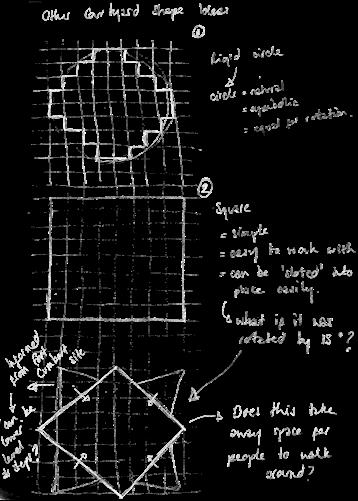 Other Courtyard Shape Ideas
①
Rigid circle
circle = natural
= symbolic
= equal for rotation.
②
Square
= simple
= easy to work with
= can be "sloted" into
place easily.
what if it was
rotated by 15°?
Does this take
away space for
people to walk
around?
from
site
can
be
lower
level
steps?